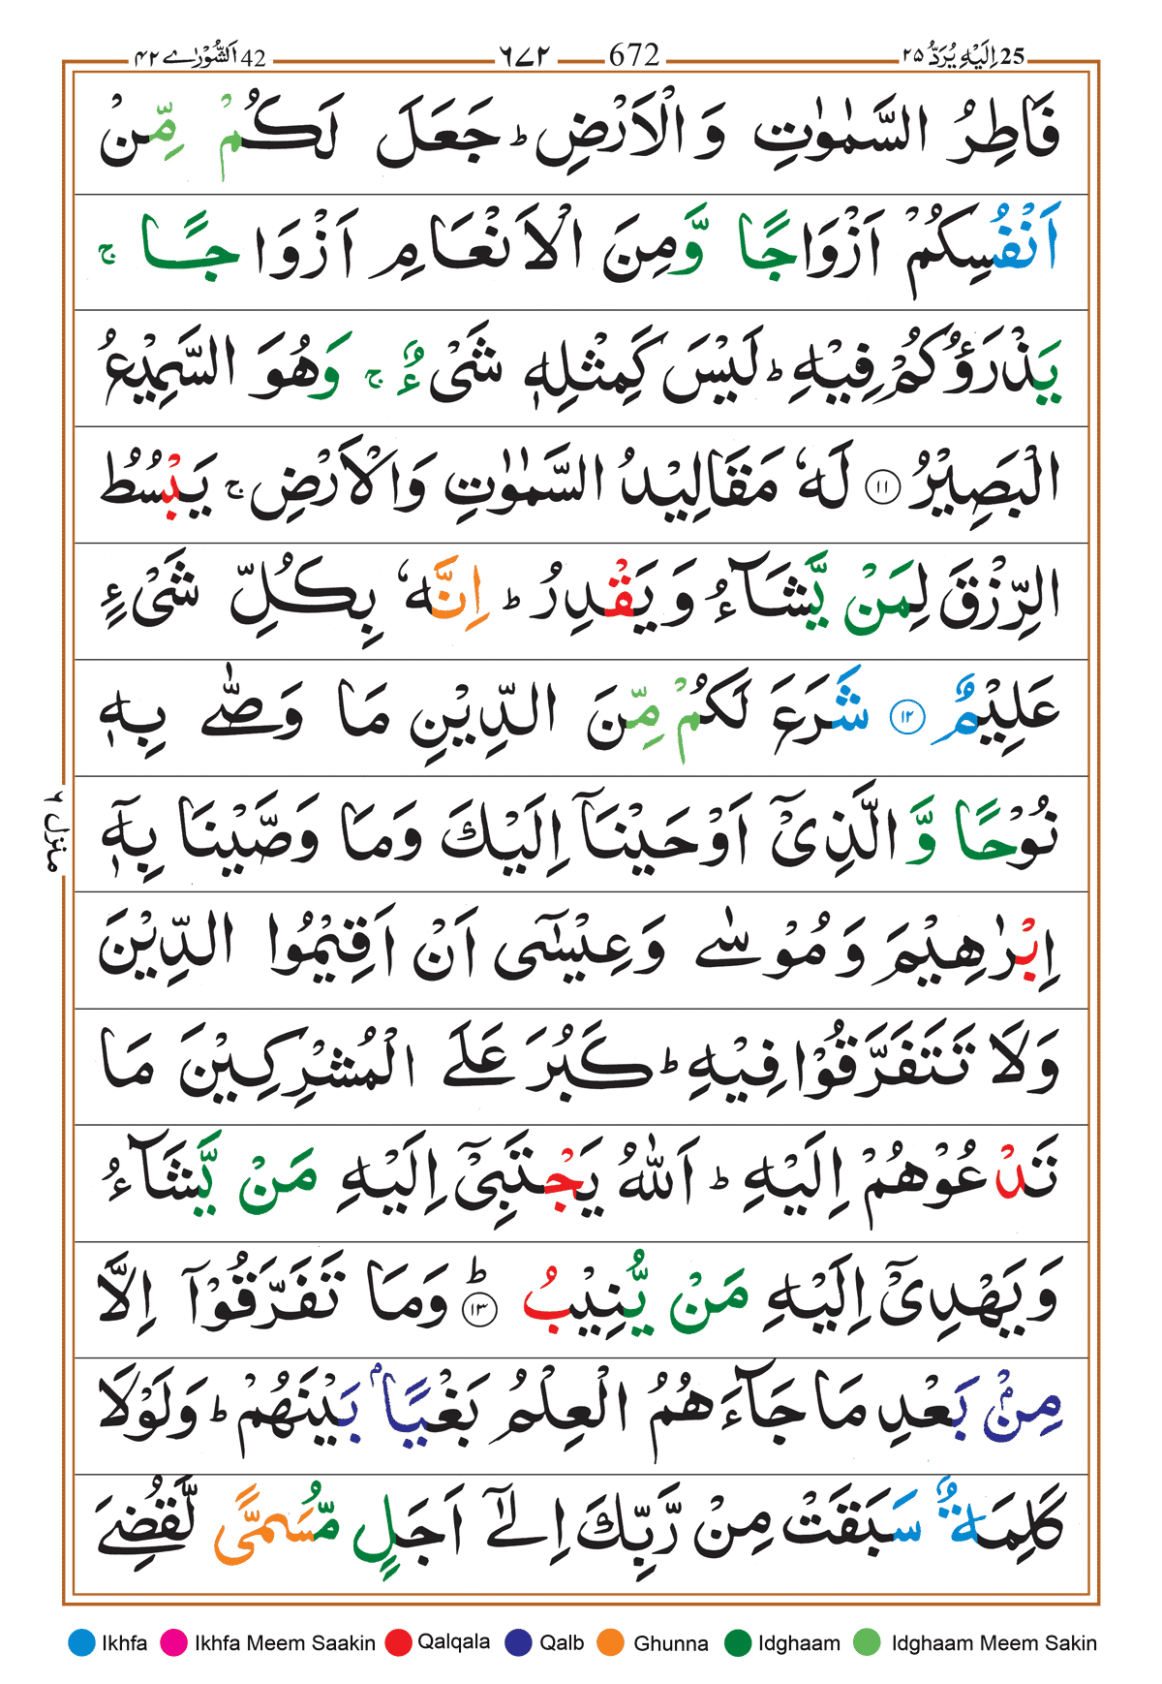 25 اِلَيْهِ يُرَدُّ ٢٥ 672 ٦٧٢ 42 اَلشُّوْرٰے ٤٢
فَاطِرُ السَّمٰوٰتِ وَالْاَرْضِ ؕ جَعَلَ لَكُمْ مِّنْ
اَنْفُسِكُمْ اَزْوَاجًا وَّمِنَ الْاَنْعَامِ اَزْوَاجًا ۚ
يَذْرَؤُكُمْ فِيْهِ ؕ لَيْسَ كَمِثْلِهٖ شَىْءٌ ۚ وَهُوَ السَّمِيْعُ
الْبَصِيْرُ ۝١١ لَهٗ مَقَالِيْدُ السَّمٰوٰتِ وَالْاَرْضِ ۚ يَبْسُطُ
الرِّزْقَ لِمَنْ يَّشَآءُ وَيَقْدِرُ ؕ اِنَّهٗ بِكُلِّ شَىْءٍ
عَلِيْمٌ ۝١٢ شَرَعَ لَكُمْ مِّنَ الدِّيْنِ مَا وَصّٰے بِهٖ
نُوْحًا وَّالَّذِىْۤ اَوْحَيْنَاۤ اِلَيْكَ وَمَا وَصَّيْنَا بِهٖۤ
اِبْرٰهِيْمَ وَمُوْسٰے وَعِيْسٰٓى اَنْ اَقِيْمُوا الدِّيْنَ
وَلَا تَتَفَرَّقُوْا فِيْهِ ؕ كَبُرَ عَلَے الْمُشْرِكِيْنَ مَا
تَدْعُوْهُمْ اِلَيْهِ ؕ اَللّٰهُ يَجْتَبِىْۤ اِلَيْهِ مَنْ يَّشَآءُ
وَيَهْدِىْۤ اِلَيْهِ مَنْ يُّنِيْبُ ؕ۝١٣ وَمَا تَفَرَّقُوْۤا اِلَّا
مِنْۢ بَعْدِ مَا جَآءَهُمُ الْعِلْمُ بَغْيًاۢ بَيْنَهُمْ ؕ وَلَوْلَا
كَلِمَةٌ سَبَقَتْ مِنْ رَّبِّكَ اِلٰٓے اَجَلٍ مُّسَمًّى لَّقُضِىَ
منزل ٦
Ikhfa Ikhfa Meem Saakin Qalqala Qalb Ghunna Idghaam Idghaam Meem Sakin